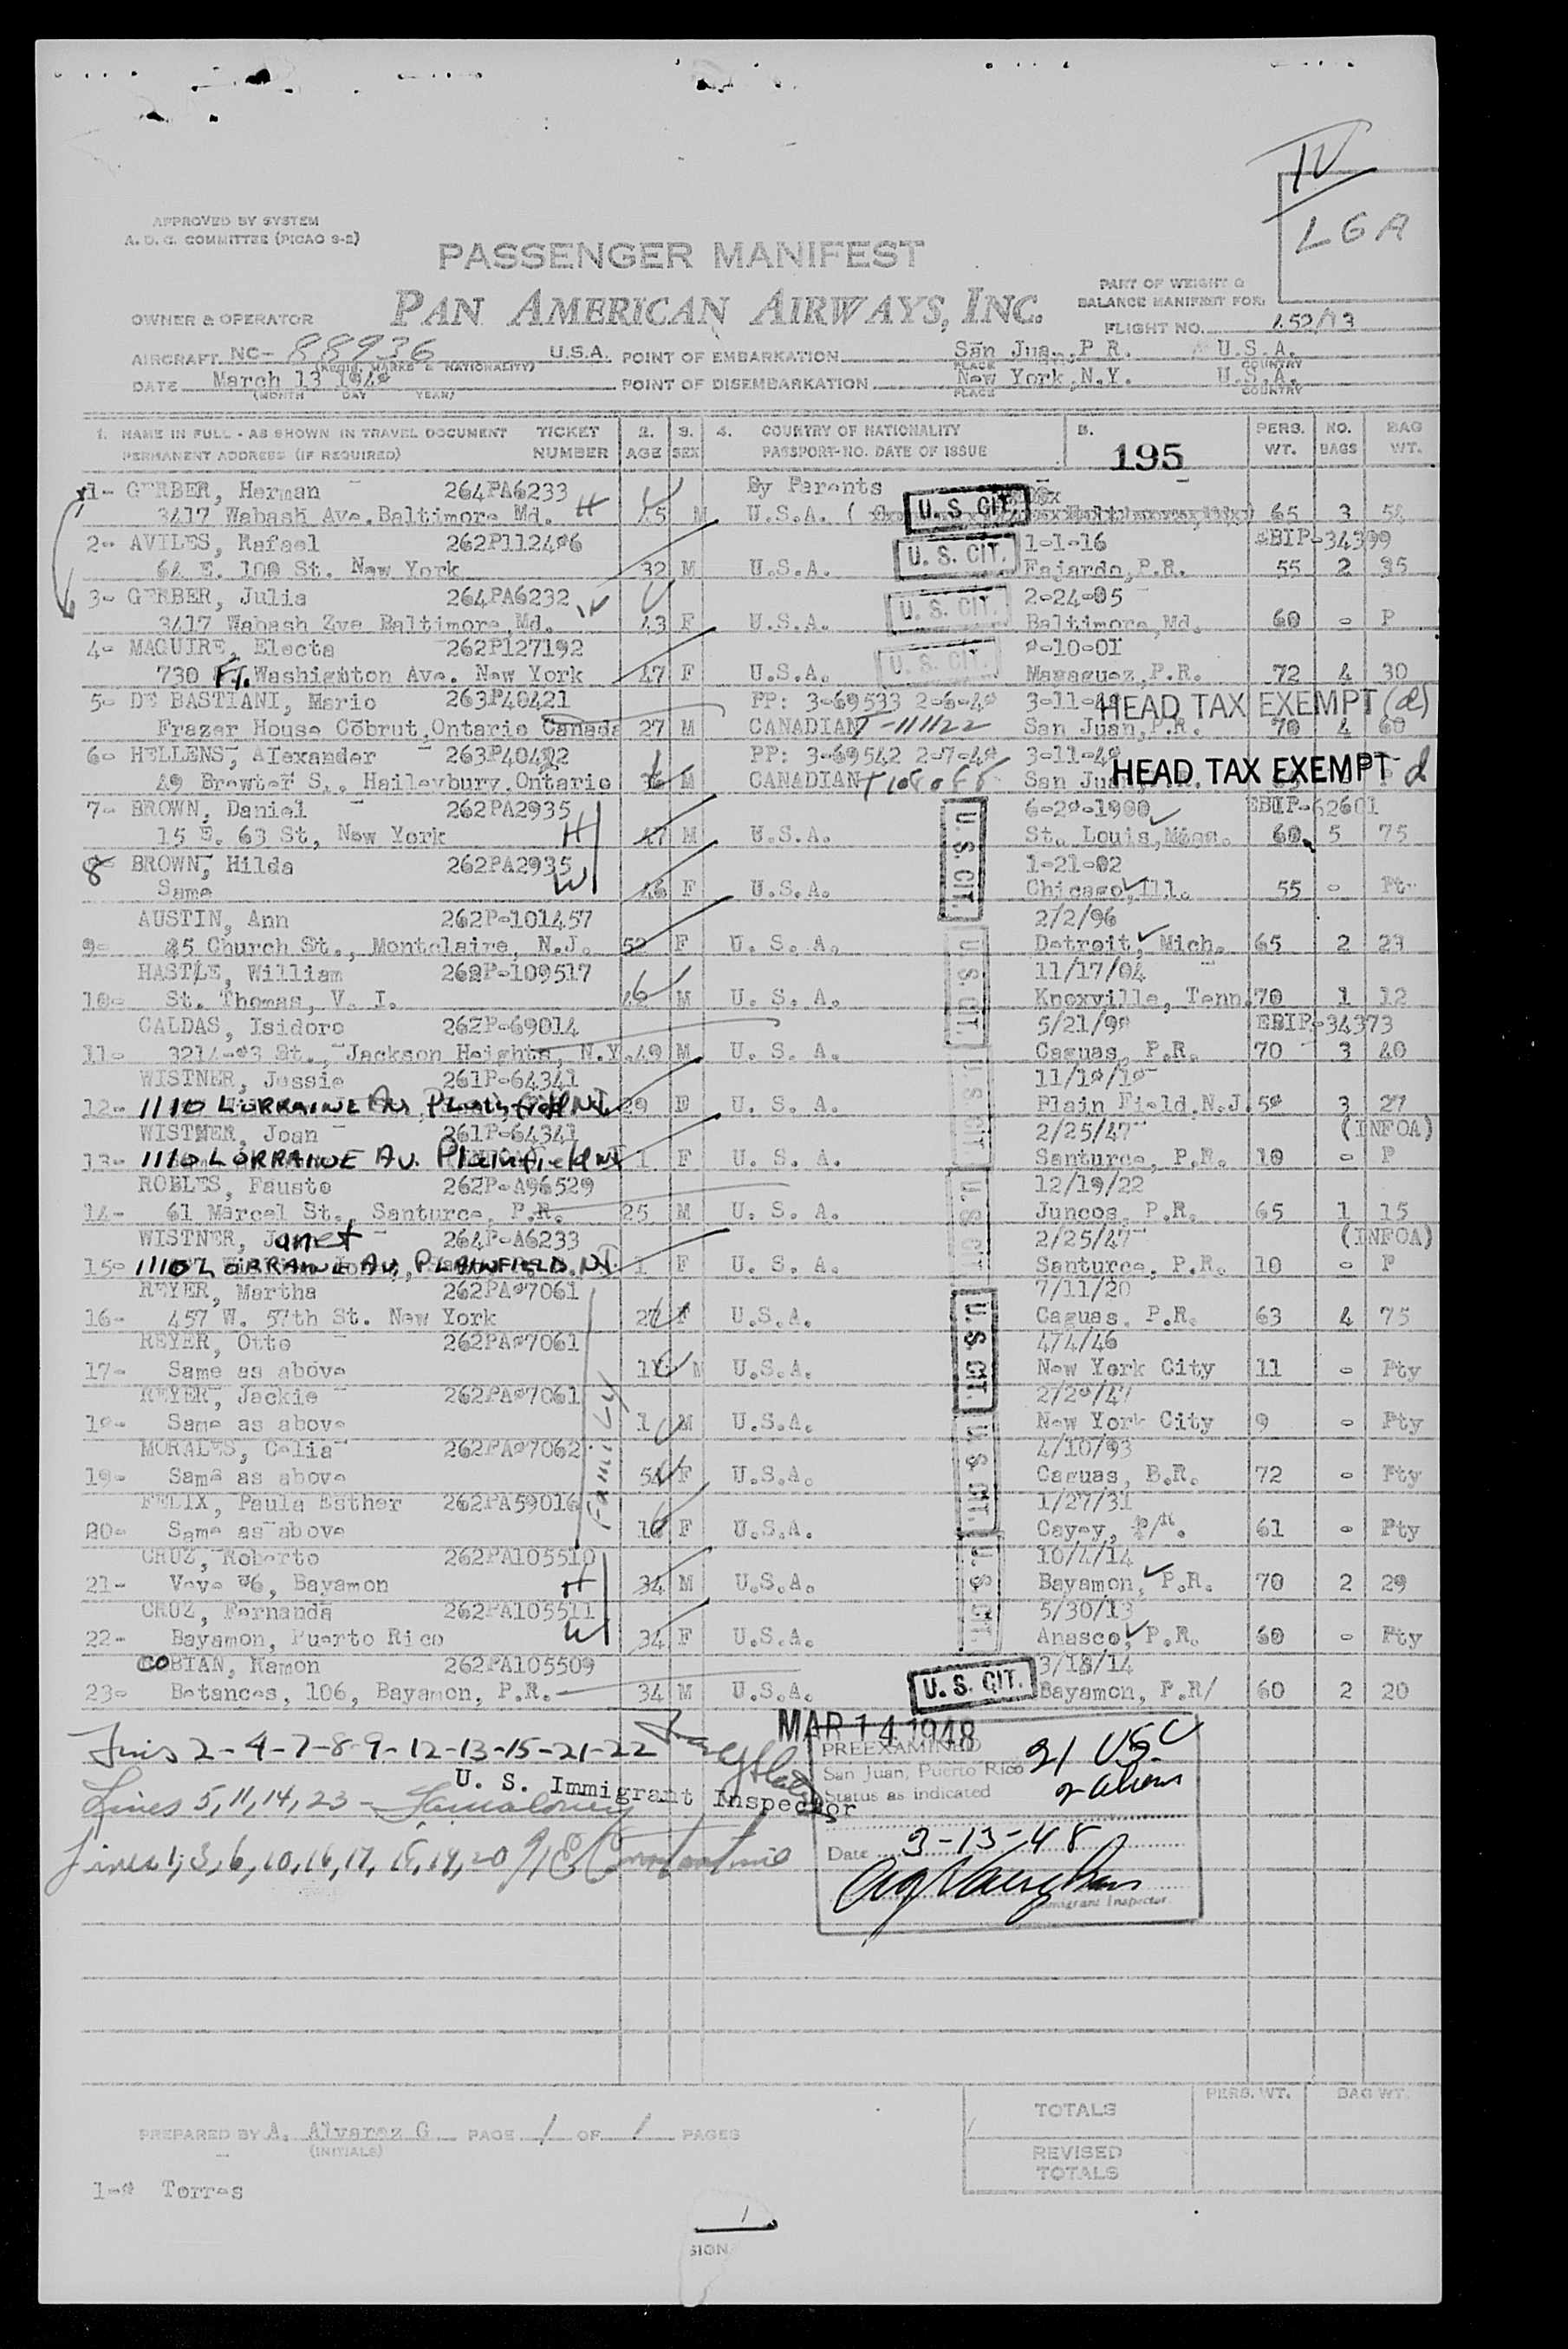 IV
LGA
APPROVED BY SYSTEM
A. D. C. COMMITTEE (PICAO 9-2)
PASSENGER MANIFEST
PART OF WEIGHT &
BALANCE MANIFEST FOR:
PAN AMERICAN AIRWAYS, INC.
OWNER & OPERATOR
FLIGHT NO. 452/13
AIRCRAFT NC- 88936 U.S.A. POINT OF EMBARKATION San Juan, P R. U.S.A.
(REGIS. MARKS & NATIONALITY) PLACE COUNTRY
DATE March 13 POINT OF DISEMBARKATION New York, N.Y. U.S.A.
(MONTH DAY YEAR) PLACE COUNTRY
1. NAME IN FULL - AS SHOWN IN TRAVEL DOCUMENT TICKET 2. 3. 4. COUNTRY OF NATIONALITY 5. PERS. NO. BAG
PERMANENT ADDRESS (IF REQUIRED) NUMBER AGE SEX PASSPORT-NO. DATE OF ISSUE 195 WT. BAGS WT.
1- GERBER, Herman 264PA6233 By Parents
3417 Wabash Ave. Baltimore Md. H 45 M U.S.A. ( U. S. CIT. 65 3
2- AVILES, Rafael U. S. CIT. 1-1-16
64 E. 100 St. New York 32 M U.S.A. Fajardo, P.R. 55 2 35
3- GERBER, Julia 264PA6232 W U. S. CIT. 2-24-05
3417 Wabash Zve Baltimore, Md. 43 F U.S.A. Baltimore, Md. 60 - P
4- MAGUIRE, Electa 262P127192 U. S. CIT.
730 Ft. Washighton Ave. New York 47 F U.S.A. Mayaguez, P.R. 72 4 30
5- DE BASTIANI, Mario 263P40421 PP: 3-69533 HEAD TAX EXEMPT (d)
Frazer House Cobrut, Ontario Canada 27 M CANADIAN T-111122 San Juan, P.R. 70 4 60
6- HELLENS, Alexander PP: 3-69542 HEAD TAX EXEMPT d
49 Brewter S., Haileybury, Ontario M CANADIAN San Juan
7- BROWN, Daniel 262PA2935
15 E. 63 St, New York H 47 M U.S.A. U. S. CIT. St. Louis, 60 5 75
8 BROWN, Hilda 262PA2935 1-21-02
Same W 46 F U.S.A. Chicago, Ill. 55 - Pty
AUSTIN, Ann 262P-101457 2/2/96
9- 85 Church St., Montclaire, N.J. 52 F U. S. A. U. S. CIT. Detroit, Mich. 65 2 23
HASTIE, William 262P-109517 11/17/04
10- St. Thomas, V. I. M U. S. A. Knoxville, Tenn. 70 1 12
CALDAS, Isidoro 262P-69014 EBIP-34373
11- Jackson Heights, N.Y. 49 M U. S. A. Caguas, P.R. 70 3 40
WISTNER, Jessie 261P-64341
12- 1110 LORRAINE AV Plainfield NJ 29 F U. S. A. U. S. CIT. Plain Field, N.J. 3 27
WISTNER, Joan 261P-64341 2/25/47 (INFOA)
13- 1110 LORRAINE AV. Plainfield NJ 1 F U. S. A. Santurce, P.R. 10 - P
ROBLES, Fausto 262P-A96529 12/19/22
14- 61 Marcel St., Santurce, P.R. 25 M U. S. A. U. S. CIT Juncos, P.R. 65 1 15
WISTNER, Janet 264P-A6233 2/25/47 (INFOA)
15- 1110 LORRAINE AV, PLAINFIELD NJ 1 F U. S. A. Santurce, P.R. 10 - P
REYER, Martha 7/11/20
16- 457 W. 57th St. New York 27 F U.S.A. U. S. CIT. Caguas, P.R. 63 4 75
REYER, Otto 4/4/46
17- Same as above M U.S.A. New York City 11 - Pty
REYER, Jackie
18- Same as above 1 M U.S.A. U. S. CIT. New York City 9 - Pty
MORALES, Celia
19- Same as above 54 F U.S.A. Caguas, P.R. 72 - Pty
Family
FELIX, Paula Esther 262PA59016 1/27/31
20- Same as above 16 F U.S.A. Cayey, 61 - Pty
CRUZ, Roberto 262PA105510 10/4/14
21- Bayamon H 34 M U.S.A. U. S. CIT. Bayamon, P.R. 70 2 29
CRUZ, Fernanda 262PA105511 5/30/13
22- Bayamon, Puerto Rico W 34 F U.S.A. Anasco, P.R. 60 - Pty
COBIAN, Ramon 262PA105509 3/18/14
23- Betances, 106, Bayamon, P.R. 34 M U.S.A. U. S. CIT. Bayamon, P.R/ 60 2 20
MAR 14 1948
Lines 2-4-7-8-9-12-13-15-21-22
U. S. Immigrant Inspector
Lines 5, 11, 14, 23
Lines 1, 3, 6, 10, 16, 17, 18, 19, 20
PREEXAMINED
San Juan, Puerto Rico
Status as indicated
21 USC
2 aliens
Date 3-13-48
Immigrant Inspector
TOTALS PERS. WT. BAG WT.
REVISED
TOTALS
PREPARED BY A. Alvarez G PAGE 1 OF 1 PAGES
(INITIALS)
Torres
1
SION